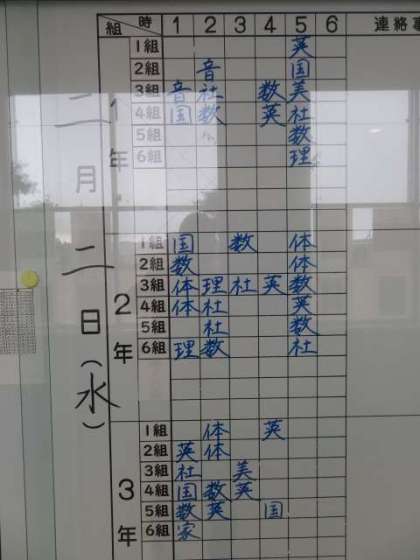 組 時 1 2 3 4 5 6 連絡事
二月二日(水)
1年
1組 英
2組 音 国
3組 音 社 数 美
4組 国 数 英 社
5組 数
6組 理
2年
1組 国 数 体
2組 数 体
3組 体 理 社 英 数
4組 体 社 英
5組 社 数
6組 理 数 社
3年
1組 体 英
2組 英 体
3組 社 美
4組 国 数 英
5組 数 英 国
6組 家